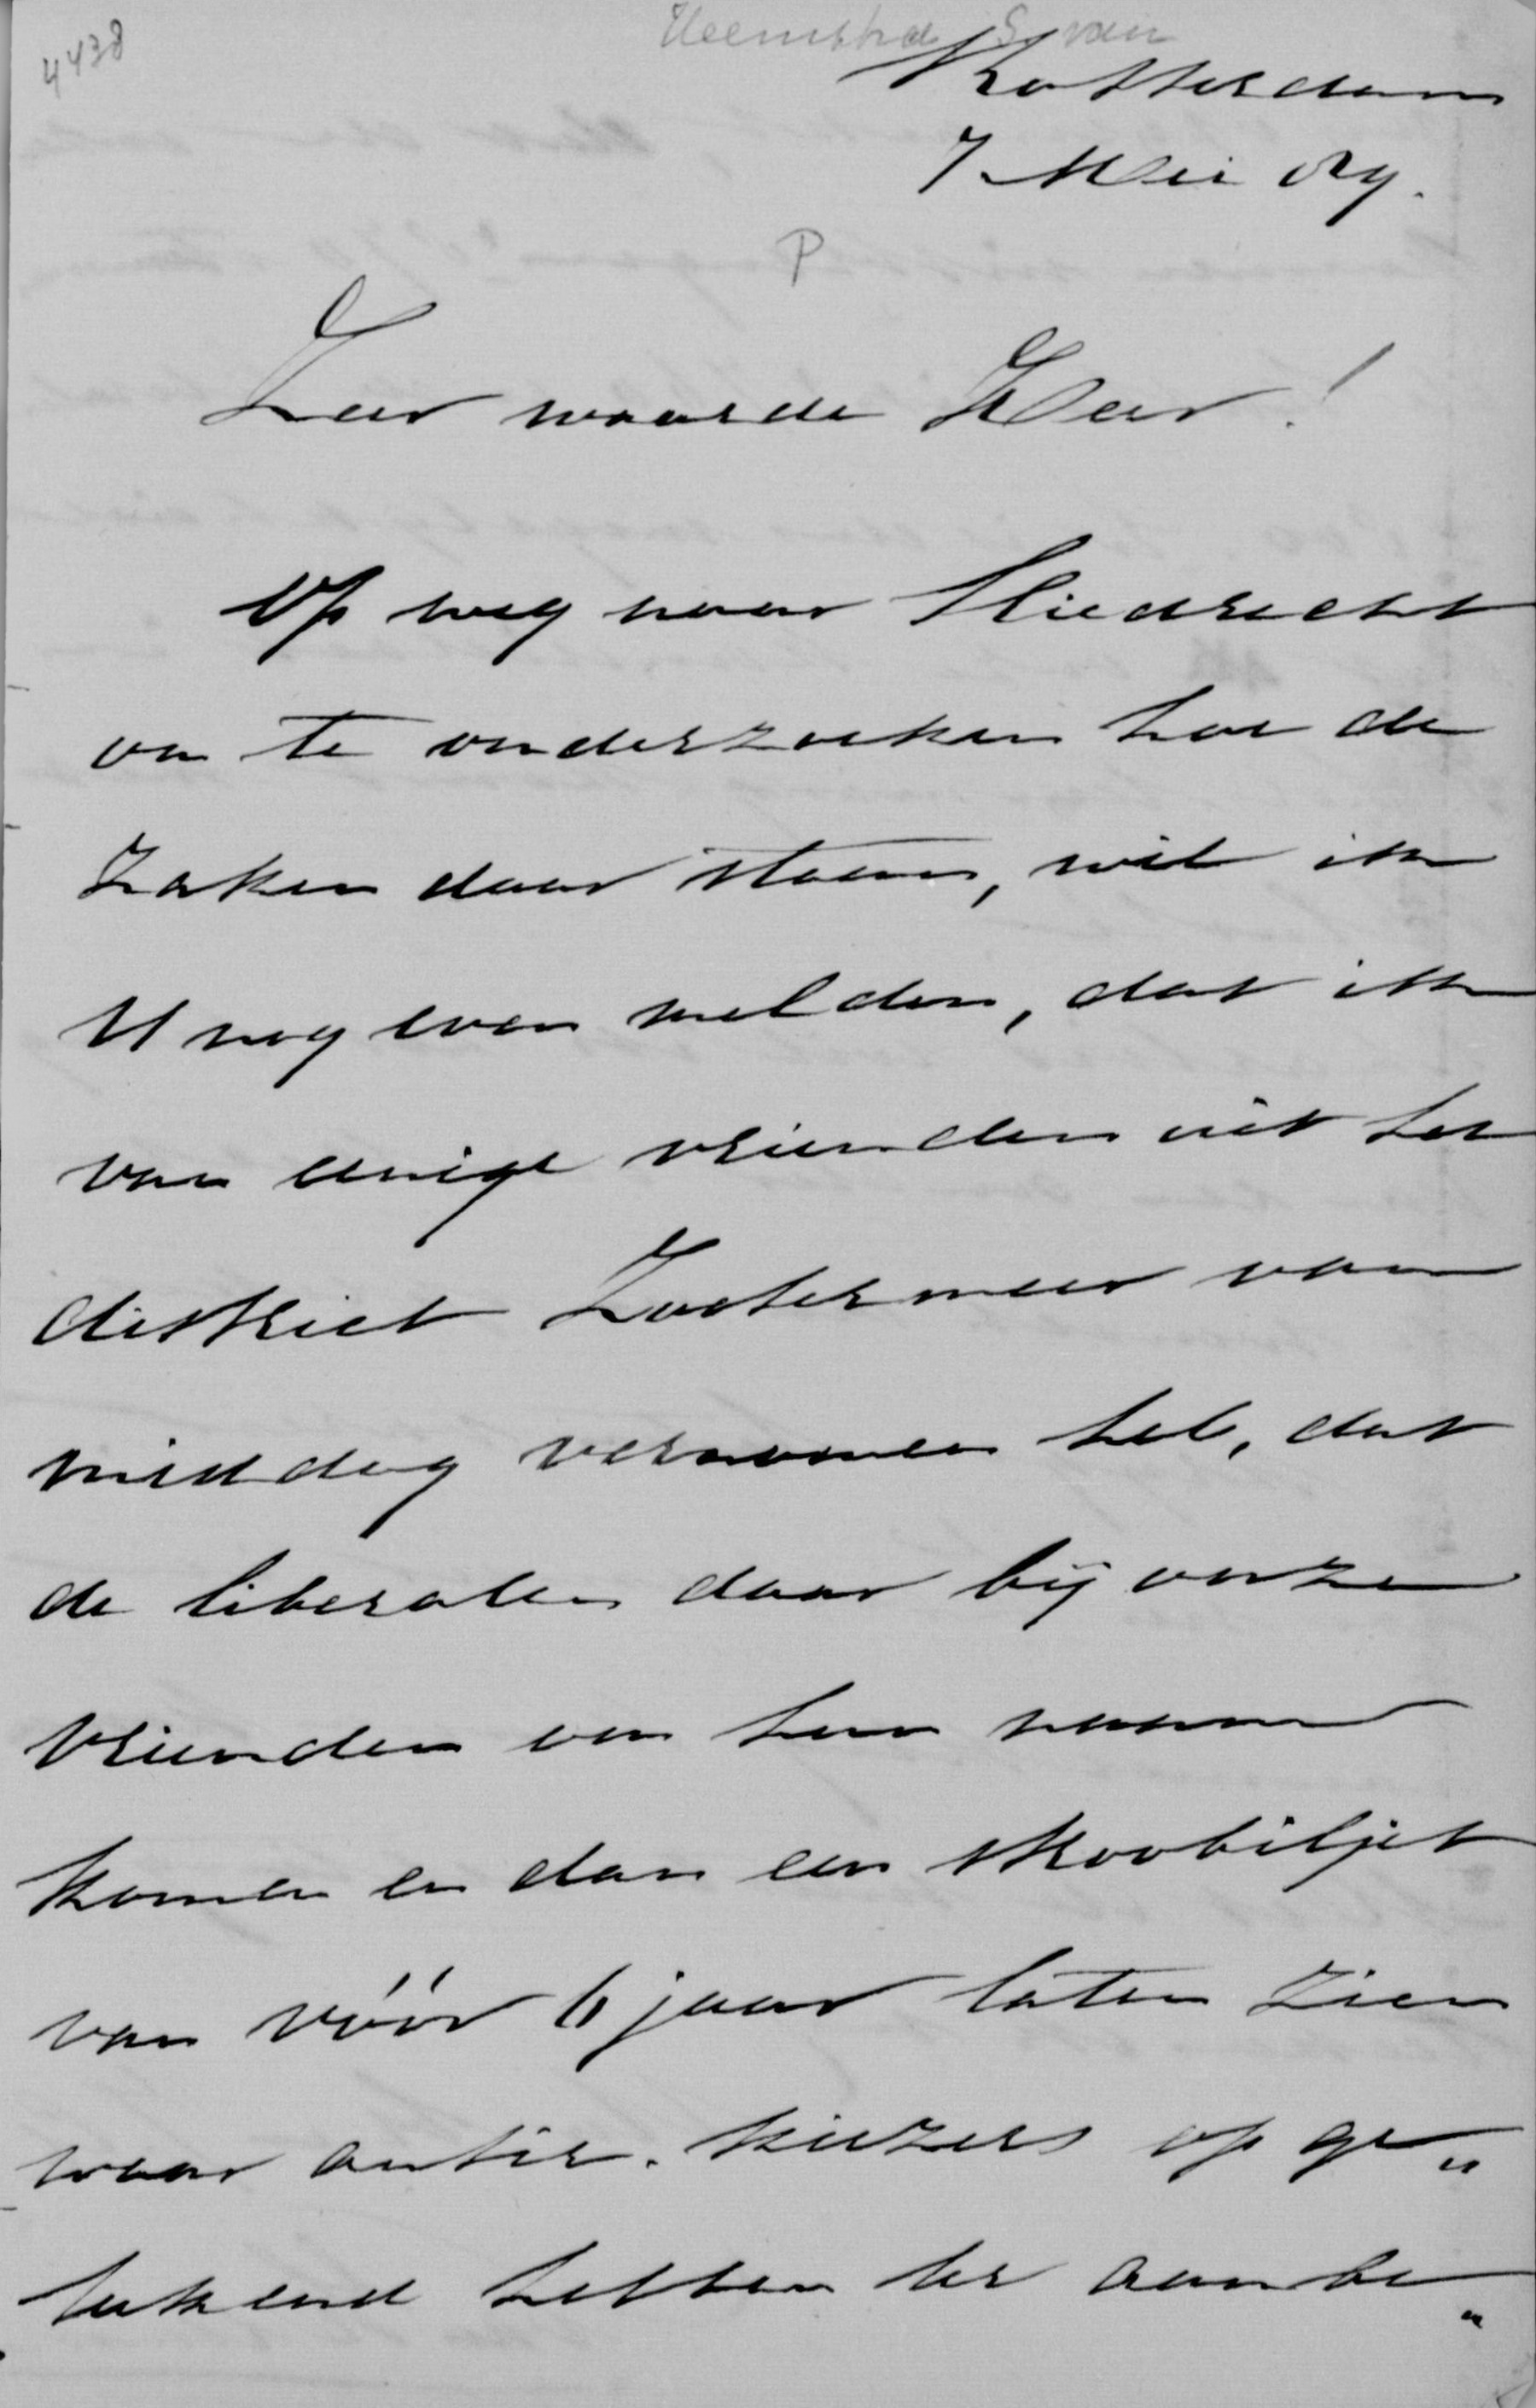 4438
Heemstra S van
Rotterdam
7 Mei 89.
P
Zeer waarde Heer!
Op weg naar Sliedrecht
om te onderzoeken hoe de
zaken daar staan, wil ik
U nog even melden, dat ik
van eenige vrienden uit het
district Zoetermeer van
middag vernomen heb, dat
de liberalen daar bij onze
vrienden om hun naam
komen en dan een strooibiljet
van vóór 6 jaar laten zien
waar antir. kiezers op ge„
tekend hebben ter aanbe„